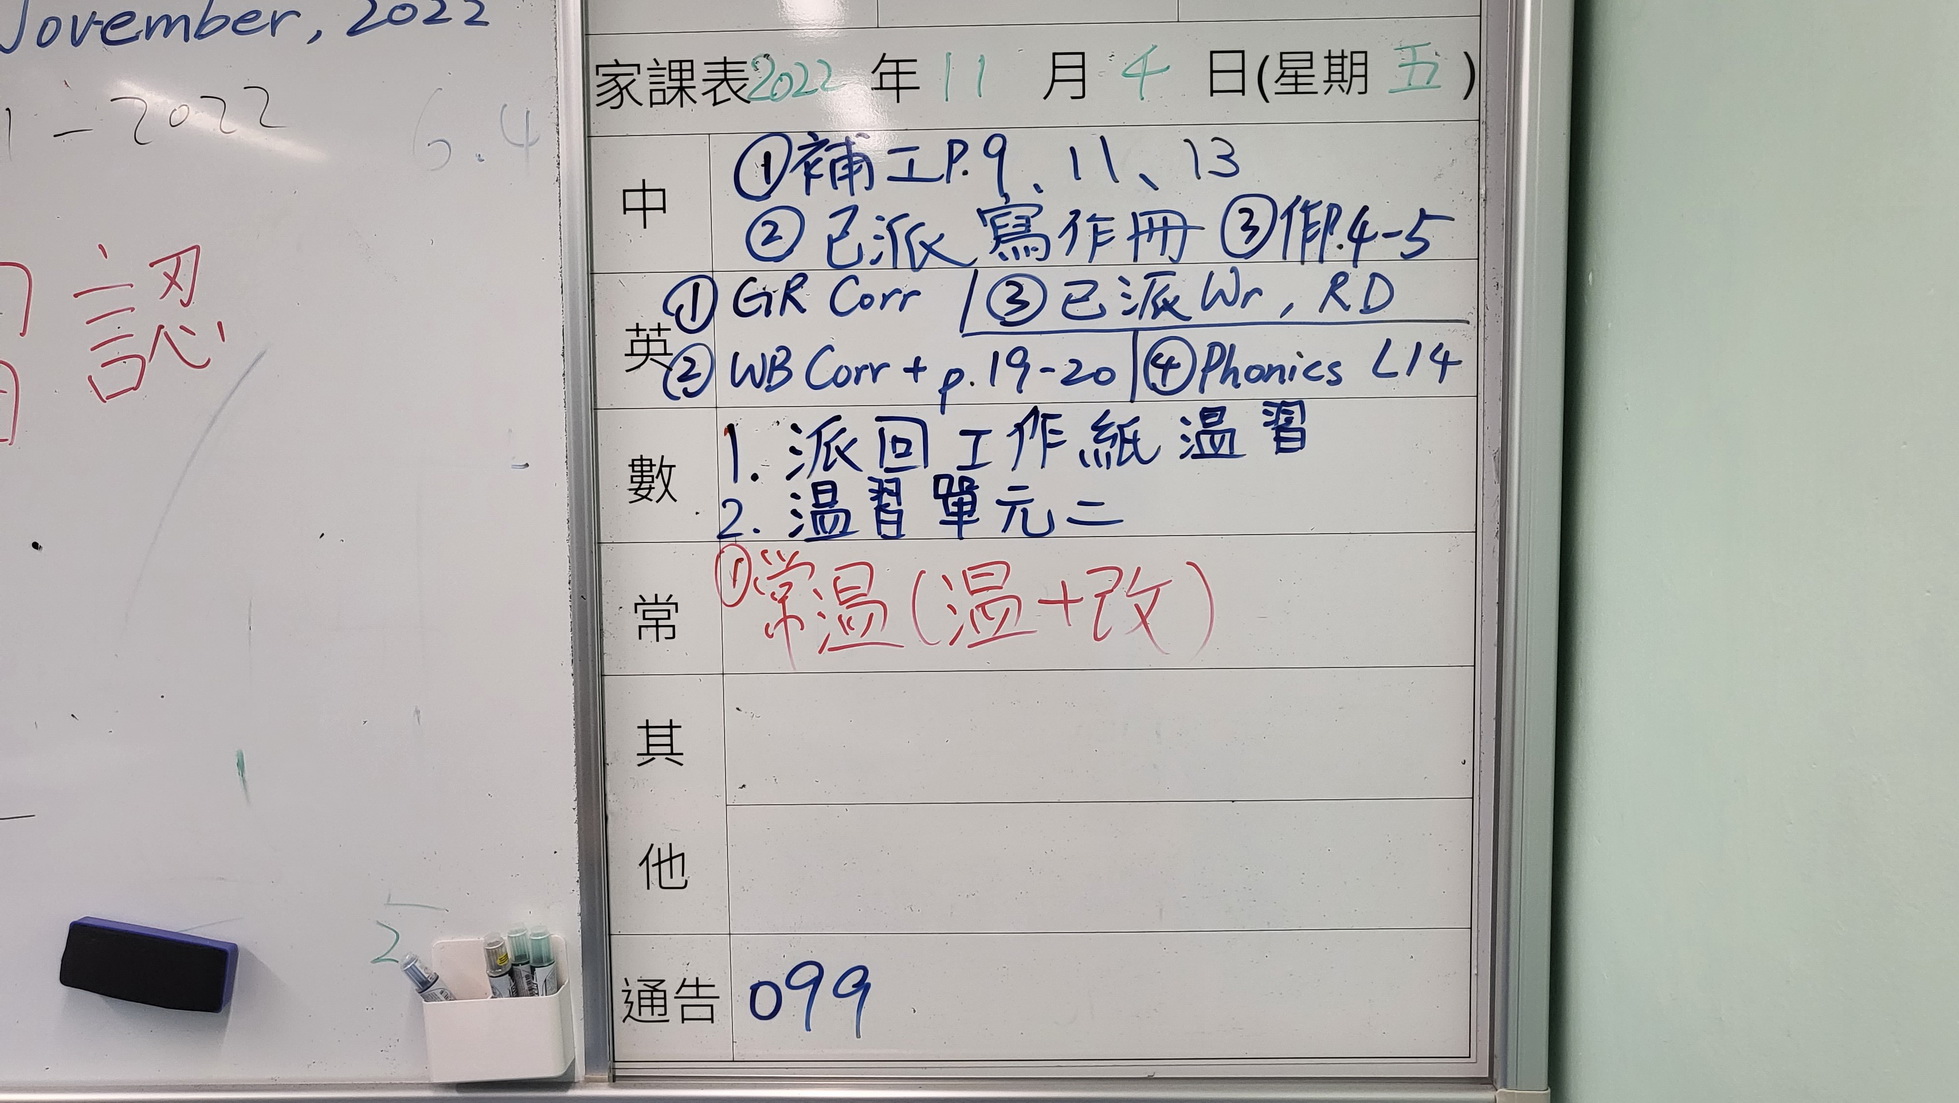 November, 2022
1-2022
6.4
認
家課表2022年11月4日(星期五)
中
①補工P.9、11、13
②已派寫作冊 ③作P.4-5
英
①GR Corr ③已派Wr, RD
②WB Corr + p.19-20 ④Phonics L14
數
1. 派回工作紙溫習
2. 温習單元二
常
①常温(温+改)
其
他
通告 099